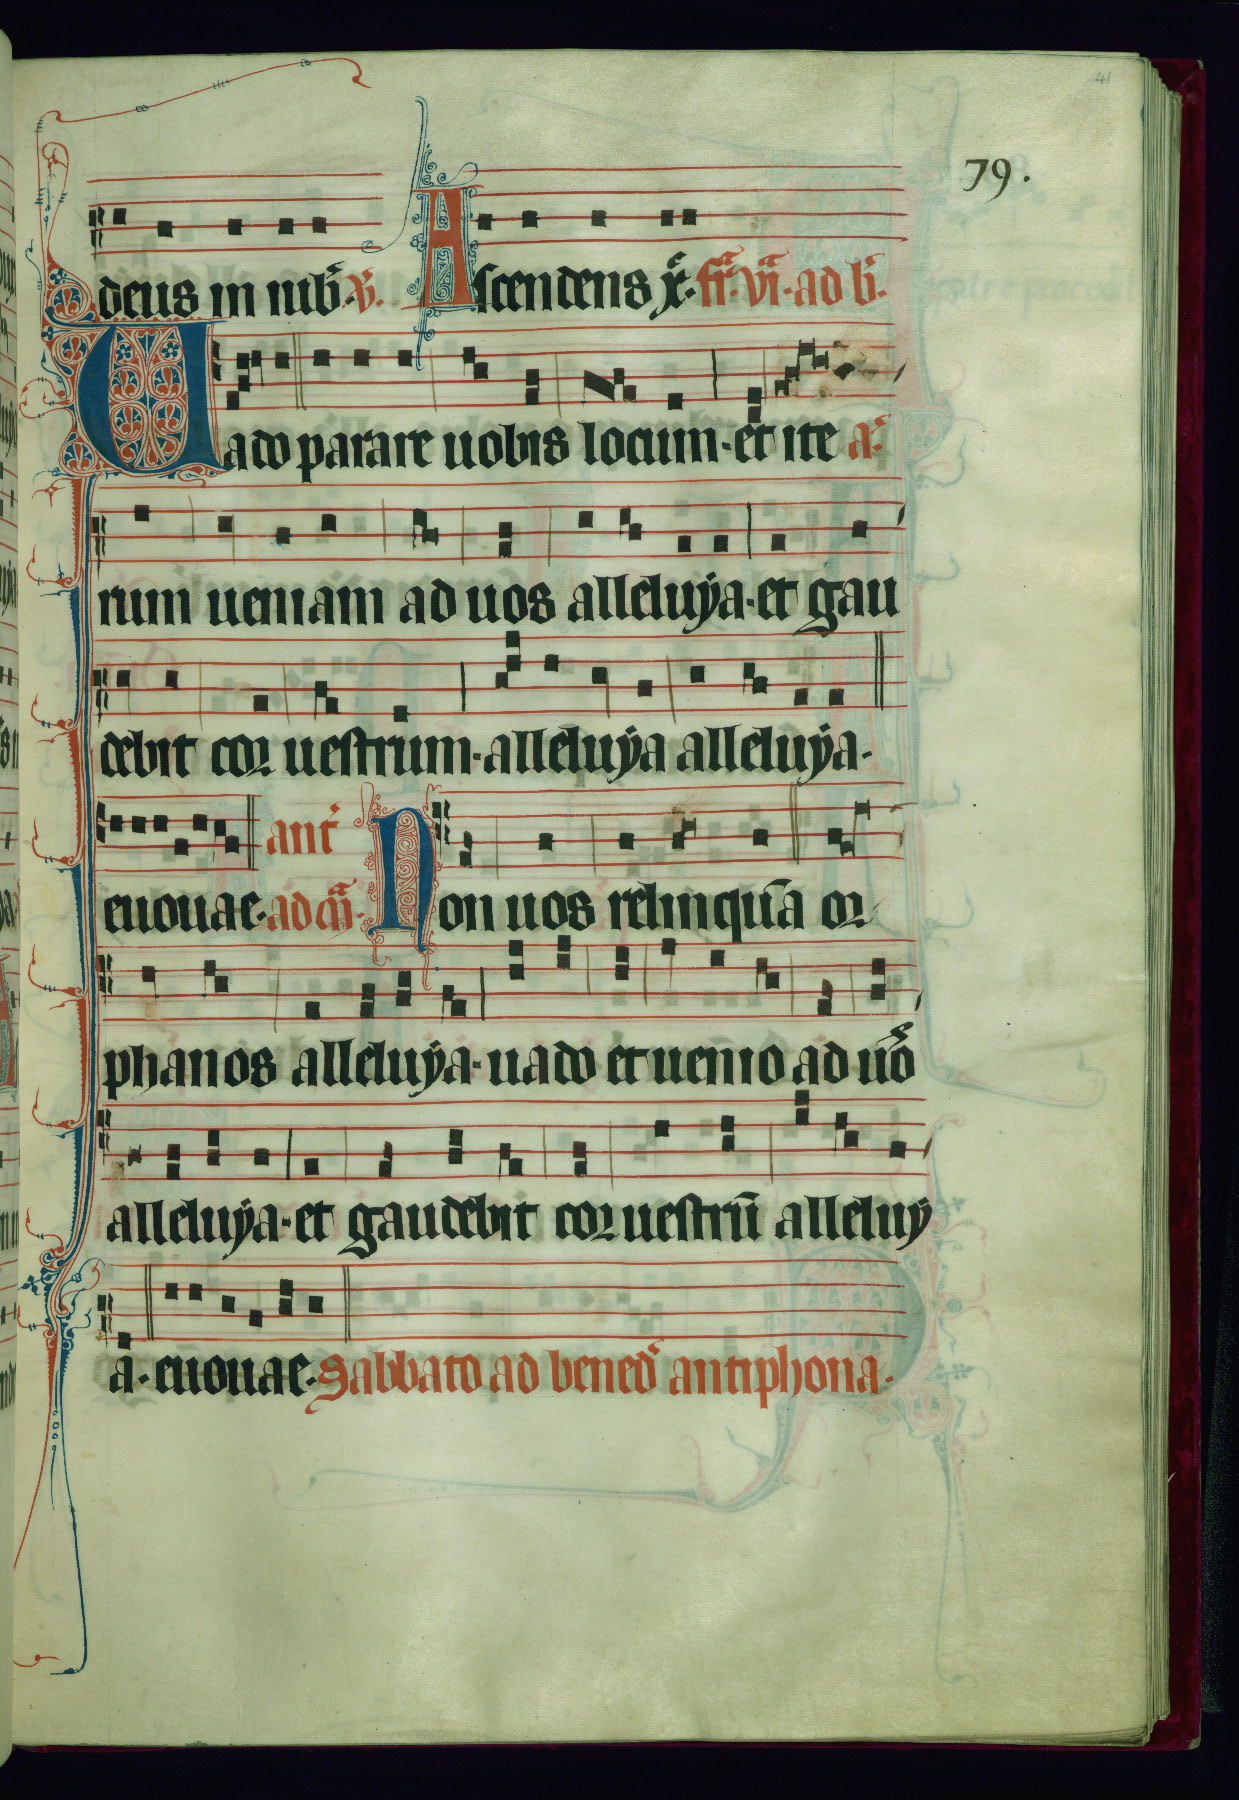 41
79.
deus in nub̾. v̾. Ascendens x̾. fr̾. vi̾. ad b̾.
Uado parare uobis locum. et ite
rum ueniam ad uos alleluẏa. et gau
debit cor uestrum. alleluẏa alleluẏa.
ant̾
euouae. ad m̄. Non uos relinquā or
phanos alleluẏa. uado et uenio ad uōs
alleluẏa. et gaudebit cor uestrū alleluẏ
a. euouae. Sabbato ad bened̾ antiphona.